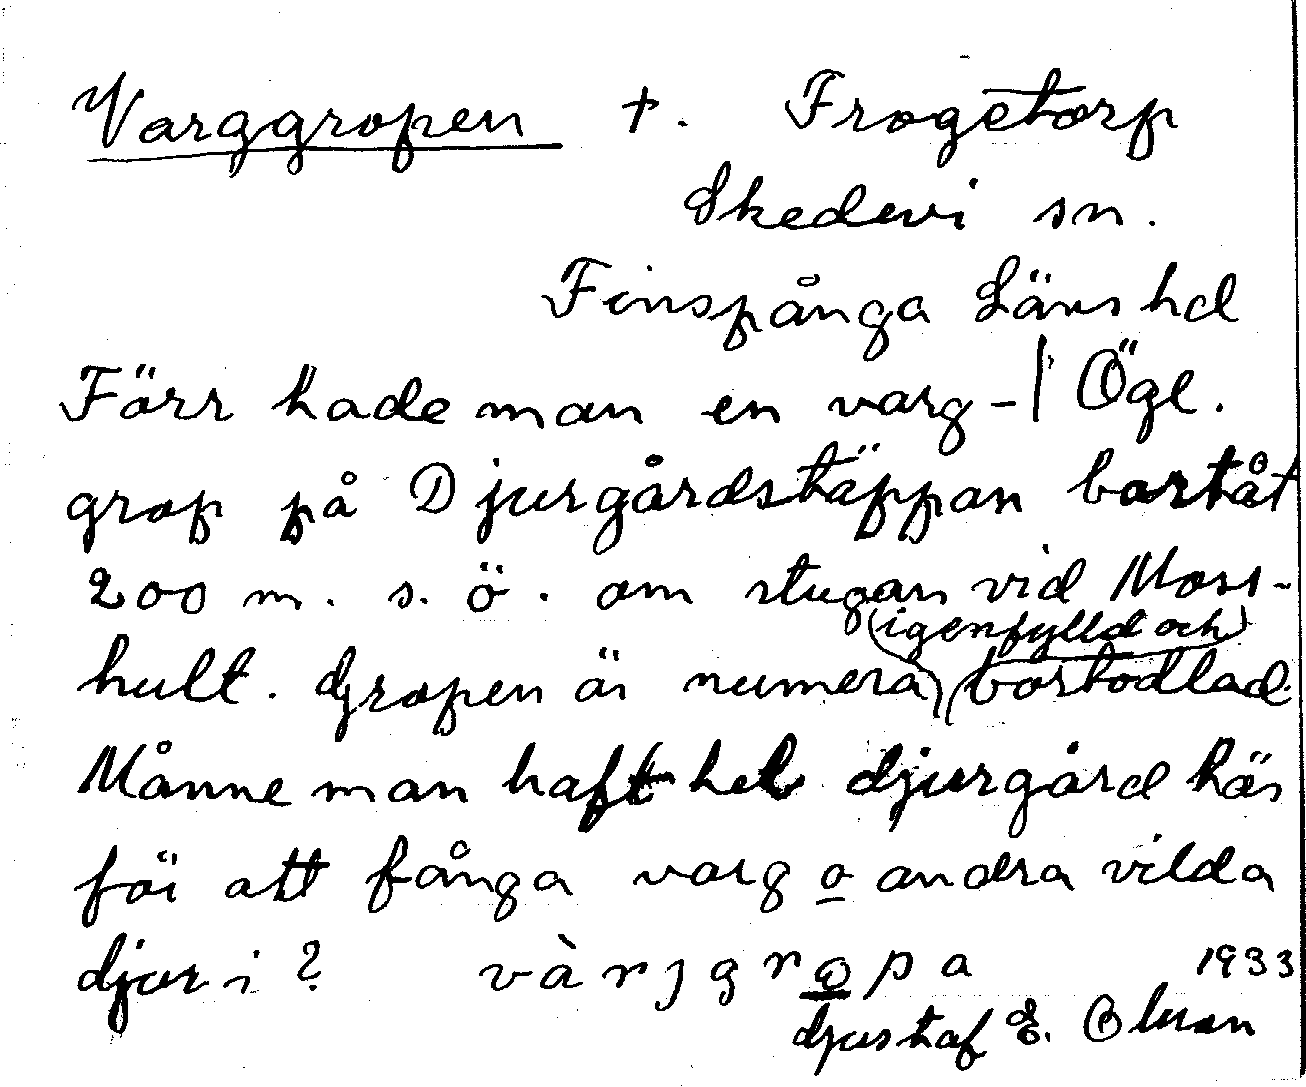 Varggropen †. Frogetorp
Skedevi sn.
Finspånga Läns hd
Förr hade man en varg- | Ögl.
grop på Djurgårdstäppan bortåt
200 m. s. ö. om stugan vid Moss-
hult. Gropen är numera (igenfylld och) bortodlad.
Månne man haft hel djurgård här
för att fånga varg o andra vilda
djur i? vàrjgropa 1933
Gustaf E. Olsson